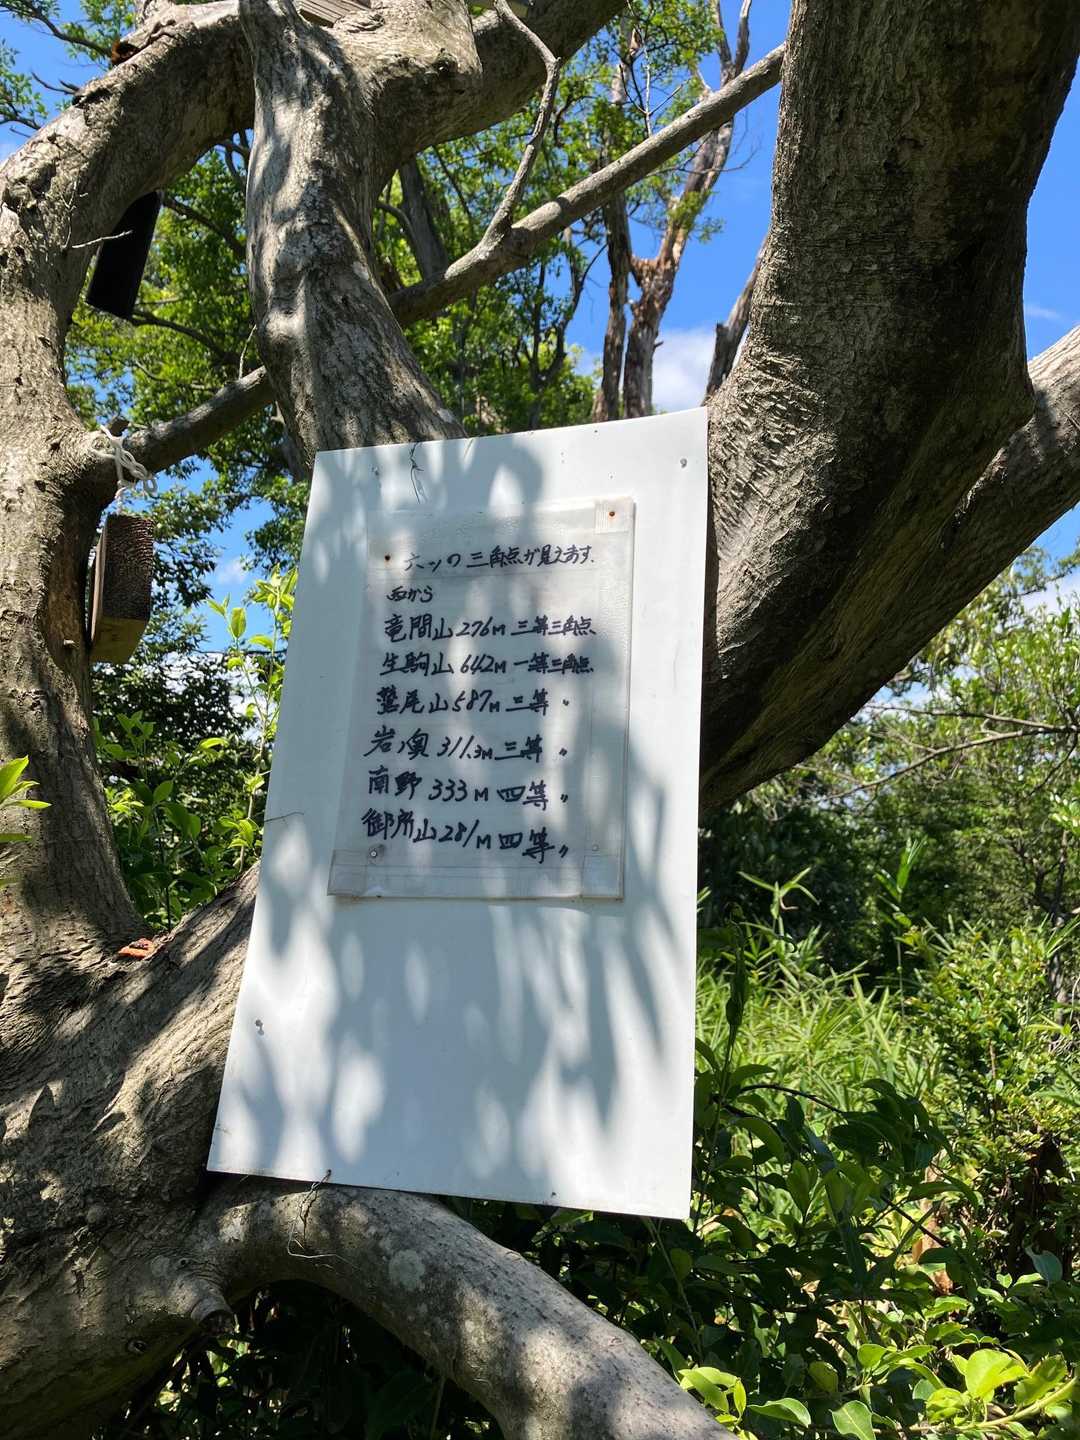 六ッの三角点が見えます.
西から
竜間山276M 三等三角点
生駒山642M 一等三角点
鷲尾山587M 三等 〃
岩ノ奥 311.3M 三等 〃
南野 333M 四等〃
御所山281M 四等〃